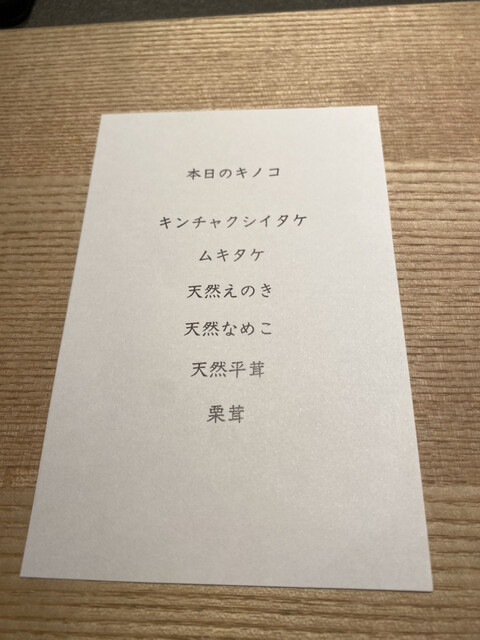 本日のキノコ
キンチャクシイタケ
ムキタケ
天然えのき
天然なめこ
天然平茸
栗茸